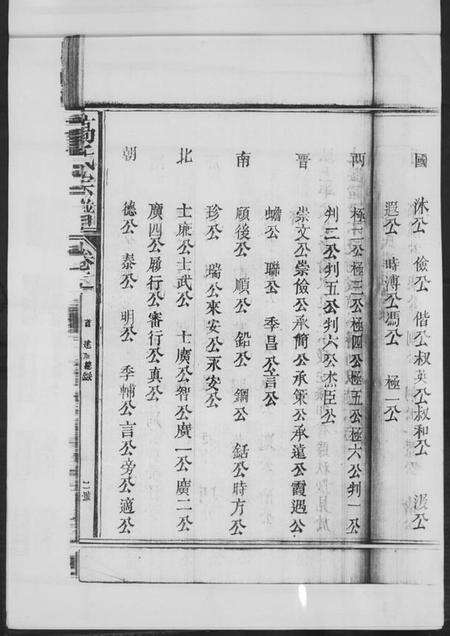 國 洙公 儉公 偕公叔英公叔和公 浞公
遐公 時溥公馮公 極一公
兩 極二公極三公極四公極五公極六公判一公
判二公判五公判六公杰臣公
晋 崇文公崇儉公承簡公承策公承遠公霞遇公
蟾公 聯公 季昌公言公
南 順後公 順公 鉛公 鋼公 銛公時方公
珍公 瑞公來安公永安公
北 士廉公士武公 士廣公智公廣一公廣二公
廣四公履行公審行公真公
朝 德公 泰公 明公 季輔公言公旁公適公